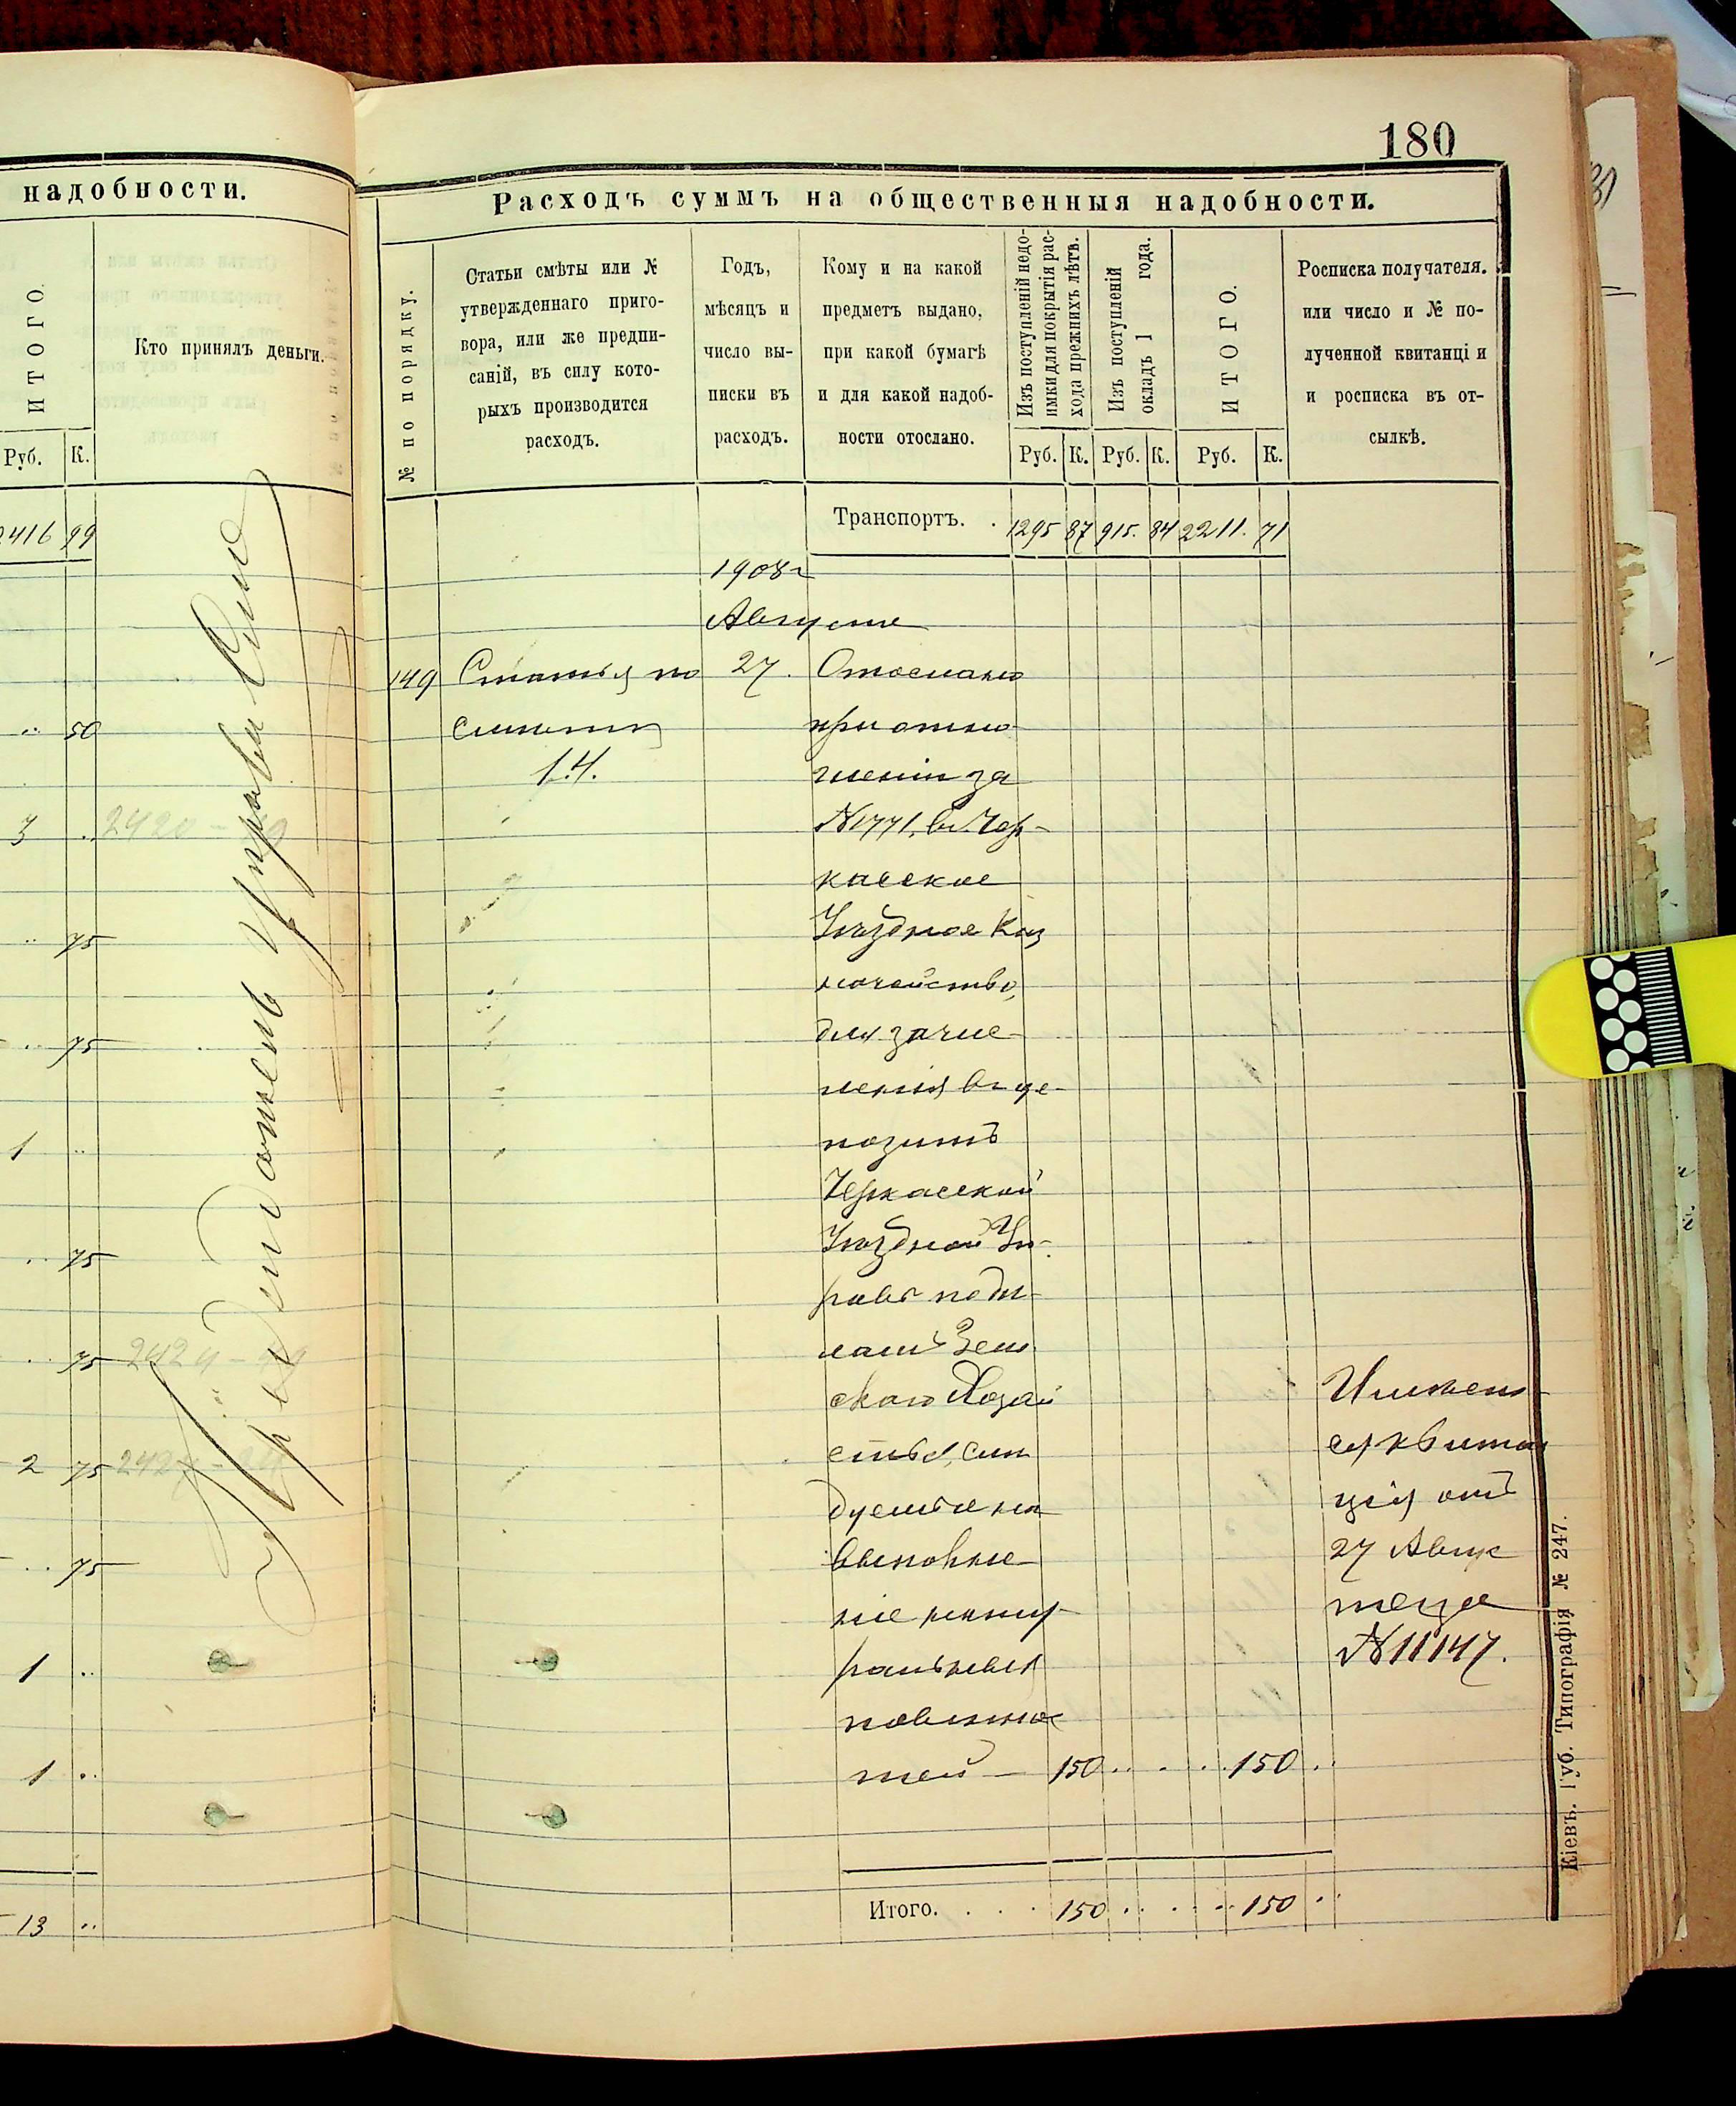 надобности.
ИТОГО.
Кто принялъ деньги.
Руб. К.
2416 99
.. 50
3 ..
2420-
.. 75
.. 75
1 ..
.. 75
.. 75
2 75
.. 75
1 ..
1 ..
13 ..
Управы
180
Расходъ суммъ на общественныя надобности.
№ по порядку.
Статьи смѣты или №
утвержденнаго приго-
вора, или же предпи-
саній, въ силу кото-
рыхъ производится
расходъ.
Годъ,
мѣсяцъ и
число вы-
писки въ
расходъ.
Кому и на какой
предметъ выдано,
при какой бумагѣ
и для какой надоб-
ности отослано.
Изъ поступленій недо-
имки для покрытія рас-
хода прежнихъ лѣтъ.
Изъ поступленій
окладъ 1 года.
ИТОГО.
Росписка получателя.
или число и № по-
лученной квитанці и
и росписка въ от-
сылкѣ.
Руб. К. Руб. К. Руб. К.
Транспортъ. . 1295 87 915. 84 2211. 71
1908 г
Августа
149 Статья по 27. Отослано
смѣтѣ при отно-
14. шеніи за
№ 1771. въ Чер-
касское
Уѣздное Каз
начейство,
для зачис-
ленія въ де-
позитъ
Черкасской
Уѣздной Уп-
равы по дѣ-
ламъ Зем
скаго Хозяй
ства, слѣ
дуемые на
выполне-
ніе нату-
ральныхъ
повиннос
тей - 150 .. .. 150 ..
квитан
ція отъ
27 Авгус
та за
№ 11147.
Итого. . . . 150 .. .. 150 ..
Кіевъ. Губ. Типографія № 247.